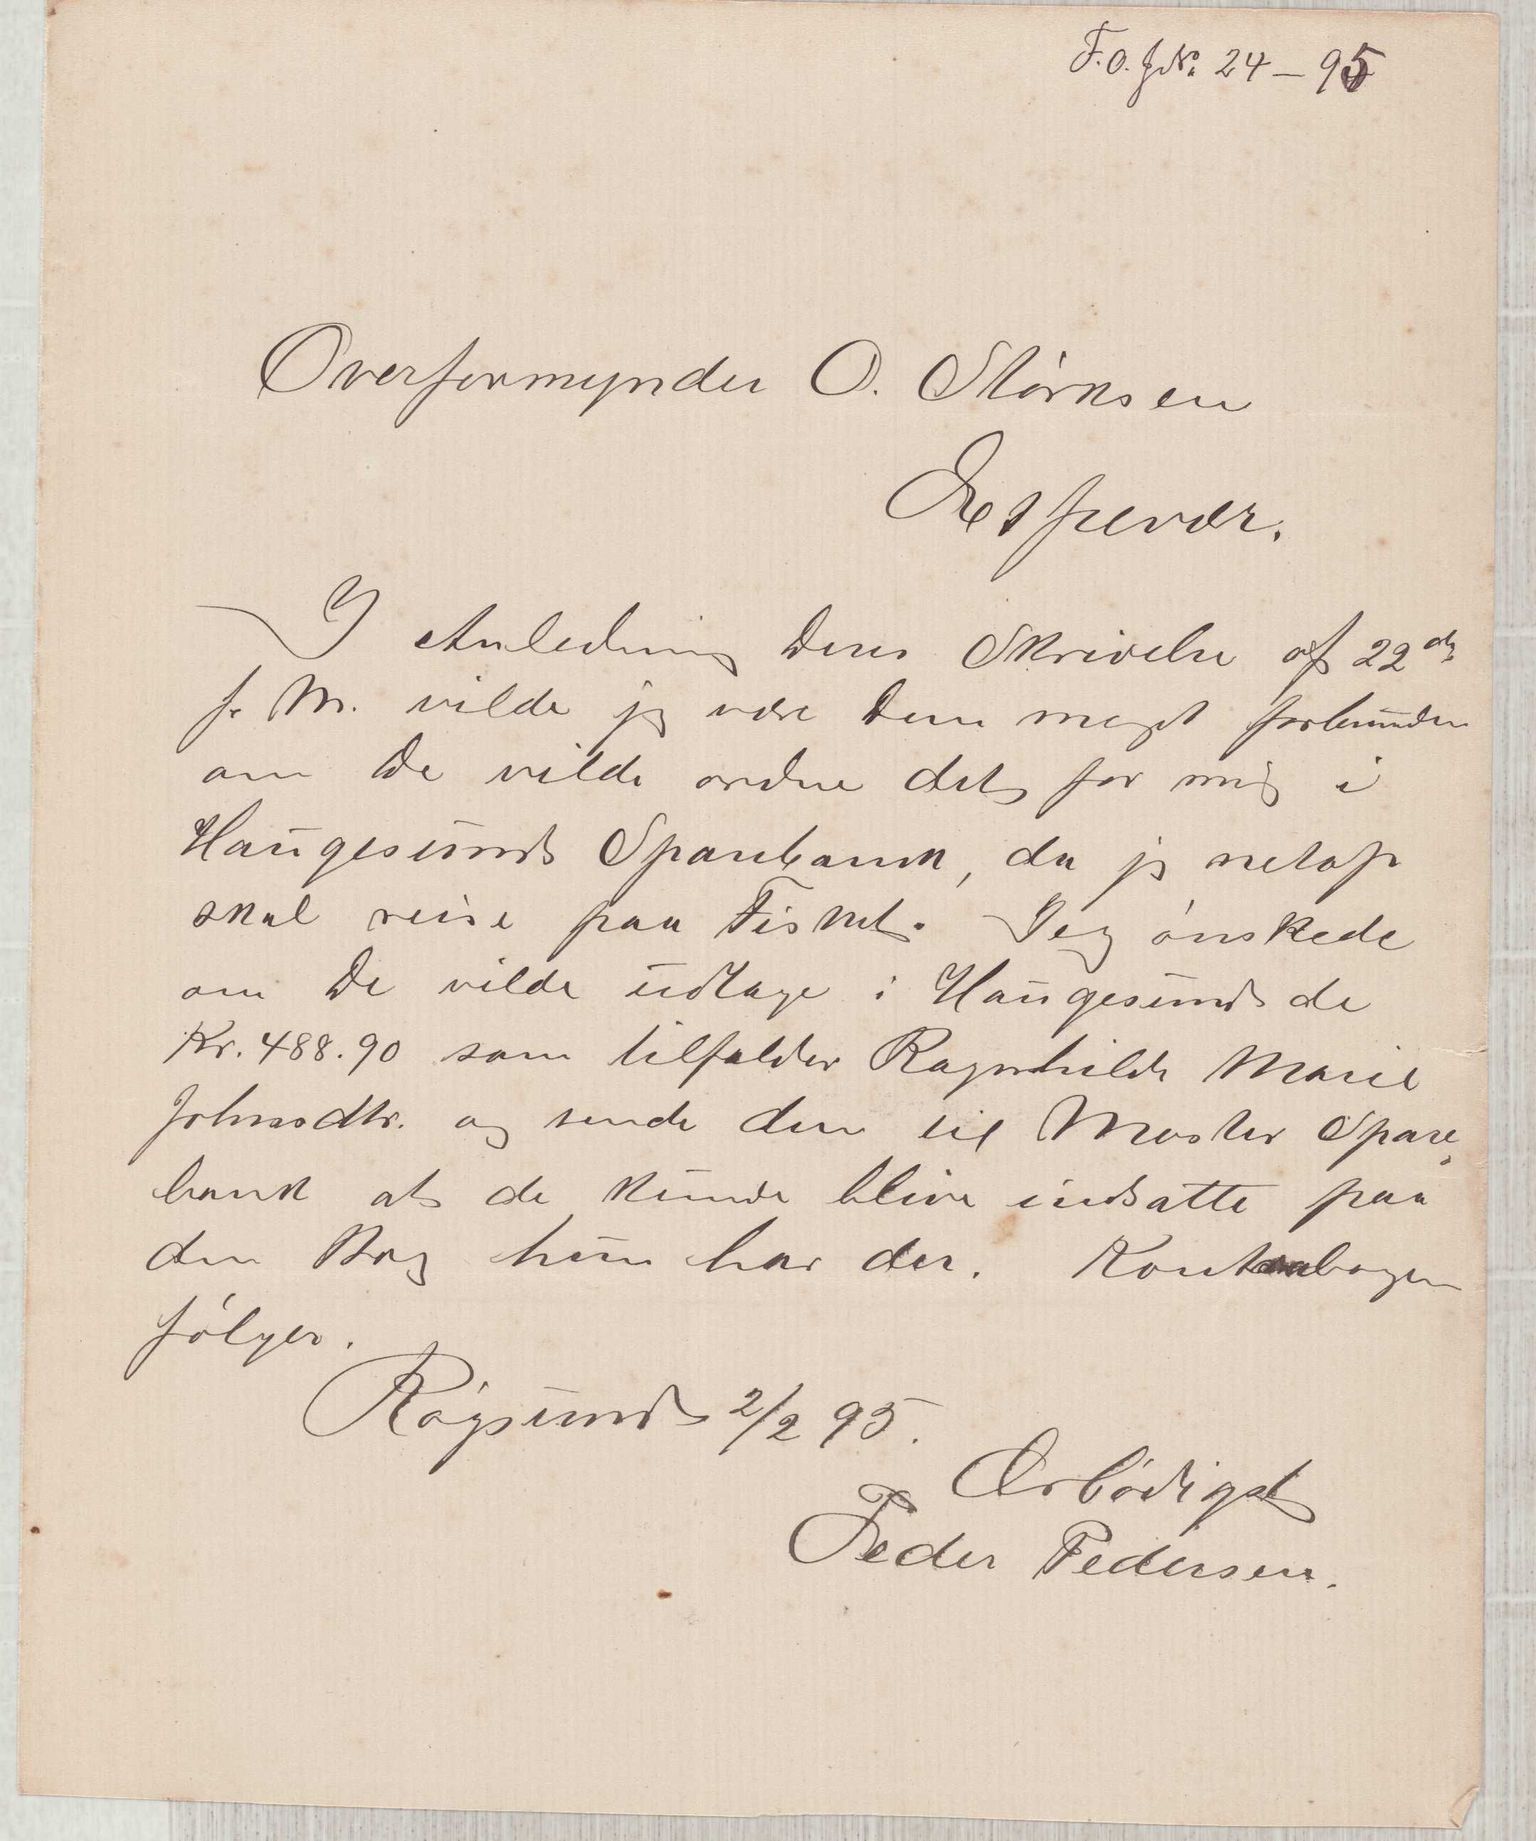 F.O. J.No. 24 – 95
Overformynder O. Størksen
Espevær.
I Anledning Deres Skrivelse af 22de
f. M. vilde jeg være Dem meget forbunden
om De vilde ordne det for mig i
Haugesunds Sparebank, da jeg netop
skal reise paa Fisket. Jeg ønskede
om De vilde udtage i Haugesund de
Kr. 488.90 som tilfalder Ragnhilde Marie
Johnsdtr. og sende dem til Moster Spare-
bank at de kunde blive indsatte paa
den Bog hun har der. Kontrabogen
følger.
Røgsund 2/2 95.
Ærbødigst
Peder Pedersen.